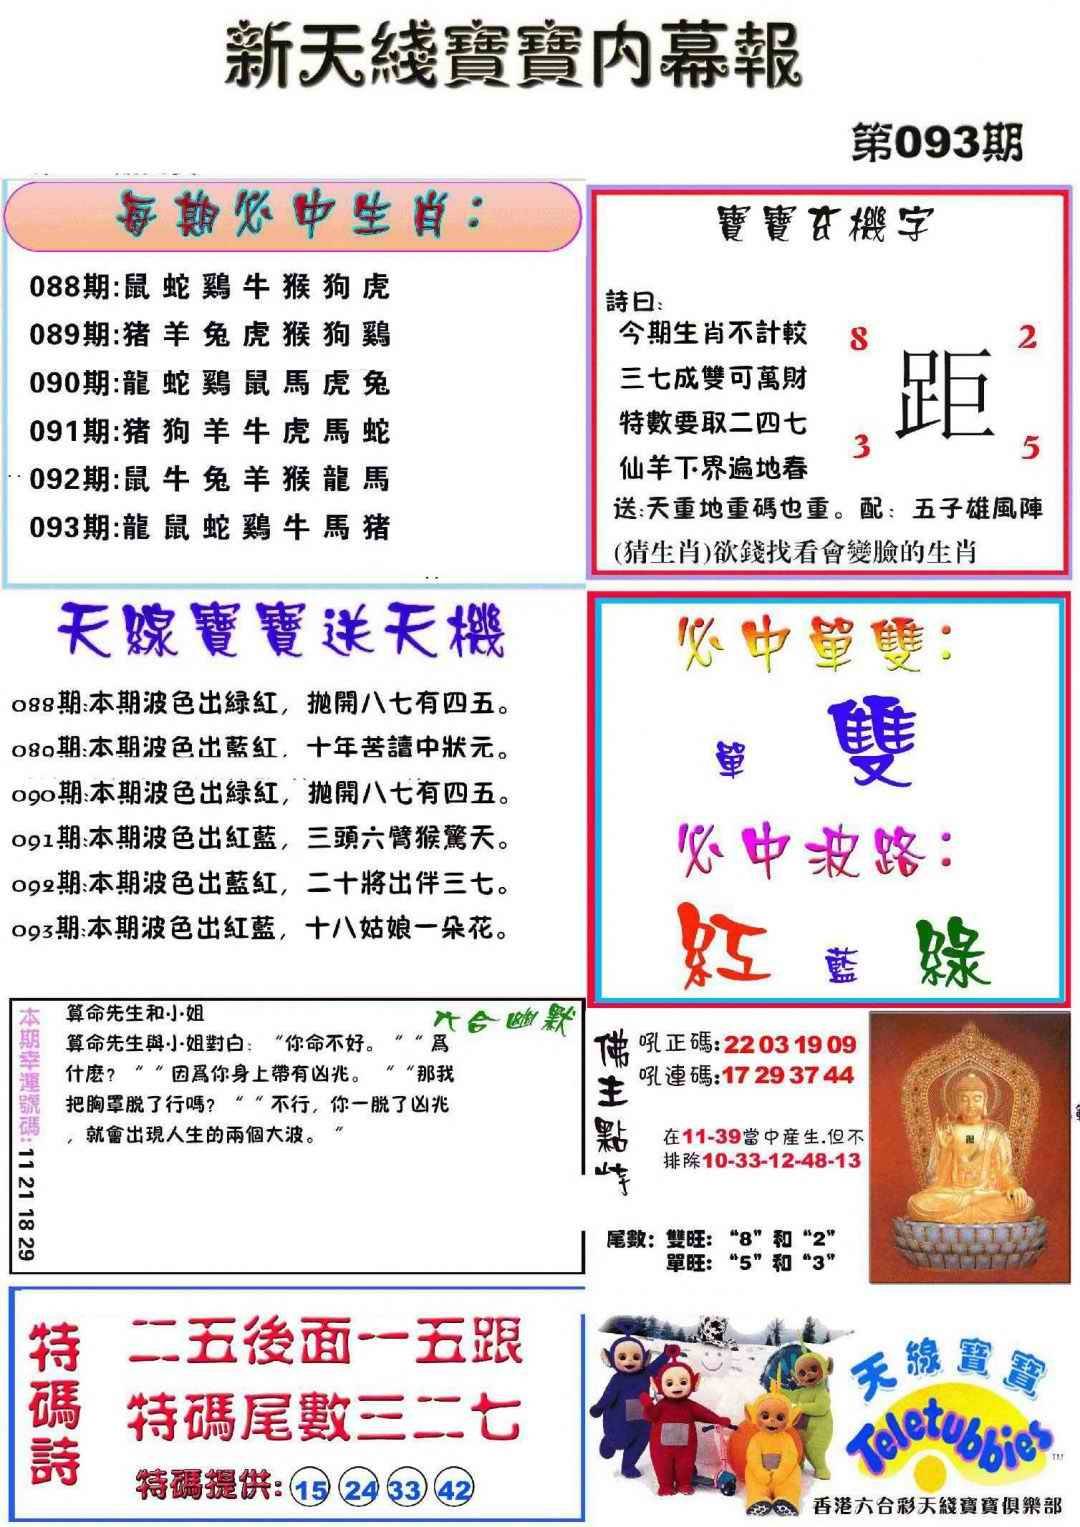 新天綫寶寶内幕報
第093期
每期必中生肖：
088期:鼠蛇鷄牛猴狗虎
089期:猪羊兔虎猴狗鷄
090期:龍蛇鷄鼠馬虎兔
091期:猪狗羊牛虎馬蛇
092期:鼠牛兔羊猴龍馬
093期:龍鼠蛇鷄牛馬猪
寶寶玄機字
詩曰:
今期生肖不計較
三七成雙可萬財
特數要取二四七
仙羊下界遍地春
8 2
距
3 5
送:天重地重碼也重。配：五子雄風陣
(猜生肖)欲錢找看會變臉的生肖
天線寶寶送天機
088期:本期波色出緑紅，拋開八七有四五。
089期:本期波色出藍紅，十年苦讀中狀元。
090期:本期波色出緑紅，拋開八七有四五。
091期:本期波色出紅藍，三頭六臂猴驚天。
092期:本期波色出藍紅，二十將出伴三七。
093期:本期波色出紅藍，十八姑娘一朵花。
必中單雙：
單 雙
必中波路：
紅 藍 綠
本期幸運號碼:11 21 18 29
六合幽默
算命先生和小姐
算命先生與小姐對白：“你命不好。““爲
什麽？““因爲你身上帶有凶兆。““那我
把胸罩脱了行嗎？““不行，你一脱了凶兆
，就會出現人生的兩個大波。“
佛主點特
吼正碼:22 03 19 09
吼連碼:17 29 37 44
在11-39當中産生.但不
排除10-33-12-48-13
尾數：雙旺：“8”和“2”
單旺：“5”和“3”
特碼詩
二五後面一五跟
特碼尾數三二七
特碼提供: 15 24 33 42
天線寶寶
Teletubbies
TM
香港六合彩天綫寶寶俱樂部